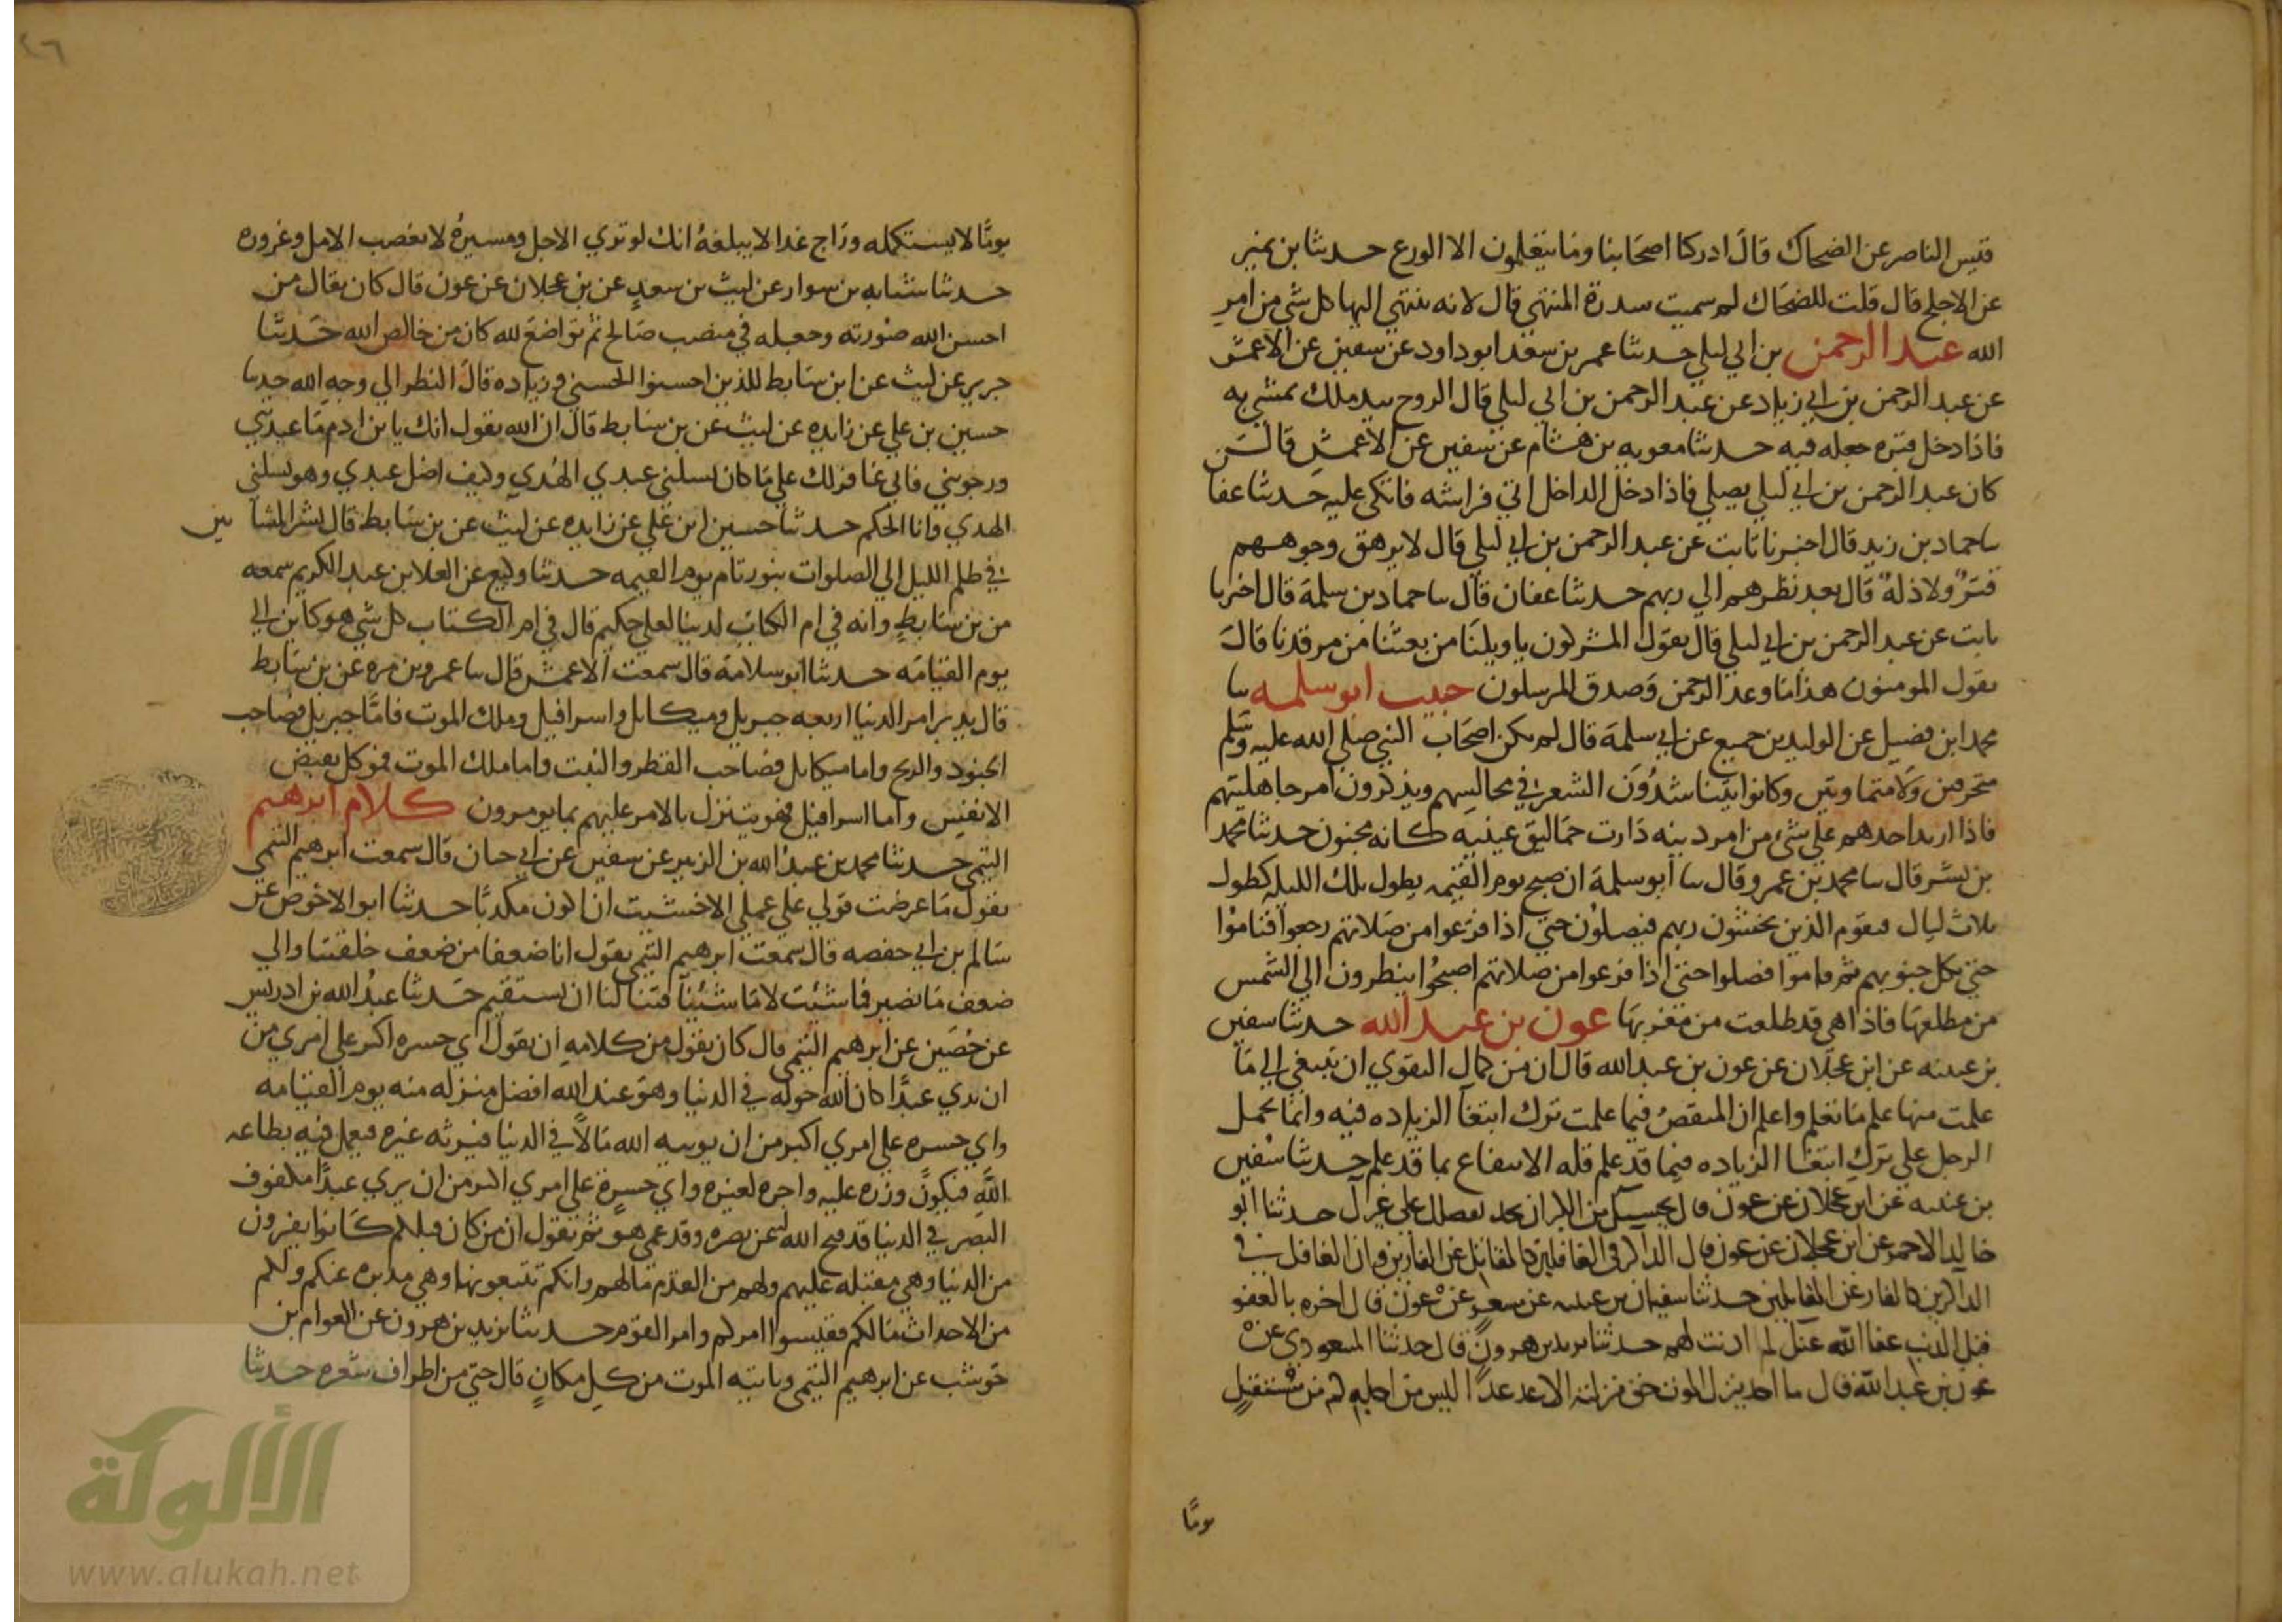 قيس الناصر عن الضحاك قال ادركنا اصحابنا وما يتعلمون الا الورع حدثنا بن نمير
عن الاجلح قال قلت للضحاك لم سميت سدرة المنتهي قال لانه ينتهي اليها كل شي من امر
الله عبد الرحمن بن ابي ليلي حدثنا عمر بن سعد ابو داود عن سفين عن الاعمش
عن عبد الرحمن بن ابي زياد عن عبد الرحمن بن ابي ليلي قال الروح بيد ملك يمشي به
فاذا دخل قبره جعله فيه حدثنا معويه بن هشام عن سفين عن الاعمش قال
كان عبد الرحمن بن ابي ليلي يصلي فاذا دخل الداخل اتي فراشه فاتكي عليه حدثنا عفا
سا حماد بن زيد قال اخبرنا ثابت عن عبد الرحمن بن ابي ليلي قال لا يرهق وجوههم
قتر ولا ذلة قال بعد نظرهم الي ربهم حدثنا عفان قال سا حماد بن سلمة قال اخبرنا
ثابت عن عبد الرحمن بن ابي ليلي قال يقول المشركون يا ويلنا من بعثنا من مرقدنا قال
يقول المومنون هذا ما وعد الرحمن وصدق المرسلون حبيب ابو سلمه سا
محمد ابن فضيل عن الوليد بن جميع عن ابي سلمة قال لم يكن اصحاب النبي صلي الله عليه وسلم
متحرمين ولا متماوتين وكانوا يتناشدون الشعر في مجالسهم ويذكرون امر جاهليتهم
فاذا اريد احدهم علي شئ من امر دينه دارت حماليق عينيه كانه مجنون حدثنا محمد
بن بشر قال سا محمد بن عمرو قال سا ابو سلمة ان صبح يوم القيمه يطول تلك الليلة كطول
ثلاث ليال فيقوم الذين يخشون ربهم فيصلون حتي اذا فرغوا من صلاتهم رجعوا فناموا
حتي تكل جنوبهم ثم قاموا فصلوا حتي اذا فرغوا من صلاتهم اصبحوا ينظرون الي الشمس
من مطلعها فاذا هي قد طلعت من مغربها عون بن عبد الله حدثنا سفين
بن عيينه عن ابن عجلان عن عون بن عبد الله قال ان من كمال التقوي ان تبتغي الي ما
علمت منها علم ما تعلم واعلم ان المنقص فيما علمت ترك ابتغا الزياده فيه وانما يحمل
الرجل علي ترك ابتغا الزياده فيما قد علم قله الانتفاع بما قد علم حدثنا سفين
بن عيينه عن ابن عجلان عن عون قال بحسبك من الكبر ان تحد بفضلك علي غيرك حدثنا ابو
خالد الاحمر عن ابن عجلان عن عون قال الذاكر في الغافلين كالمقاتل عن الفارين وان الغافل في
الذاكرين كالفار عن المقاتلين حدثنا سفيان بن عيينه عن مسعر عن عون قال اخبره بالعفو
قبل الذنب عفا الله عنك لم اذنت لهم حدثنا يزيد بن هرون قال حدثنا المسعودي عن
عون بن عبد الله قال ما احد ينزل الموت حق منزلته الا عد غدا ليس من اجله كم من مستقبل
يوما
يوما لا يستكمله وراج غدا لا يبلغه انك لو تري الاجل ومسيره لابغضت الامل وغروره
حدثنا شبابه بن سوار عن ليث بن سعد عن بن عجلان عن عون قال كان يقال من
احسن الله صورته وجعله في منصب صالح ثم تواضع لله كان من خالص الله حدثنا
جرير عن ليث عن ابن سابط للذين احسنوا الحسني وزياده قال النظر الي وجه الله حدثنا
حسين بن علي عن زايده عن ليث عن بن سابط قال ان الله يقول انك يا بن ادم ما عبدتني
ورجوتني فاني غافر لك علي ما كان يسلني عبدي الهدي وكيف اضل عبدي وهو يسلني
الهدي وانا الحكم حدثنا حسين ابن علي عن زايده عن ليث عن بن سابط قال بشر المشا ئين
في ظلم الليل الي الصلوات بنور تام يوم القيمه حدثنا وكيع عن العلا بن عبد الكريم سمعه
من بن سابط وانه في ام الكتاب لدينا لعلي حكيم قال في ام الكتاب كل شي هو كاين الي
يوم القيامه حدثنا ابو سلامة قال سمعت الاعمش قال سا عمرو بن مره عن بن سابط
قال يدبر امر الدنيا اربعه جبريل وميكايل واسرافيل وملك الموت فاما جبريل فصاحب
الجنود والريح واما ميكايل فصاحب القطر والنبت واما ملك الموت فموكل بقبض
الانفس واما اسرافيل فهو يتنزل بالامر عليهم بما يومرون كلام ابرهيم
التيمي حدثنا محمد بن عبد الله بن الزبير عن سفين عن ابي حيان قال سمعت ابرهيم التيمي
يقول ما عرضت قولي علي عملي الا خشيت ان اكون مكذبا حدثنا ابو الاحوص عن
سالم بن ابي حفصه قال سمعت ابرهيم التيمي يقول انا ضعفا من ضعف خلقتنا والي
ضعف ما نصير فما شئت لا ما شئينا فتنا لنا ان نستقيم حدثنا عبد الله بن ادريس
عن حصين عن ابرهيم التيمي قال كان يقول من كلامه ان يقول اي حسره اكبر علي امري من
ان يري عبدا كان الله خوله في الدنيا وهو عند الله افضل منزله منه يوم القيامه
واي حسره علي امري اكبر من ان يوتيه الله مالا في الدنيا فيرثه غيره فيعمل فيه بطاعه
الله فيكون وزره عليه واجره لغيره واي حسرة علي امري اكبر من ان يري عبدا مكفوف
البصر في الدنيا قد فتح الله عن بصره وقد عمي هو ثم يقول ان من كان قبلكم كانوا يفرون
من الدنيا وهي مقبله عليهم ولهم من القدم ما لهم وانكم تتبعونها وهي مدبره عنكم ولكم
من الاحداث ما لكم فقيسوا امركم وامر القوم حدثنا يزيد بن هرون عن العوام بن
حوشب عن ابرهيم التيمي وياتيه الموت من كل مكان قال حتي من اطراف شعره حدثنا
الألوكة
www.alukah.net